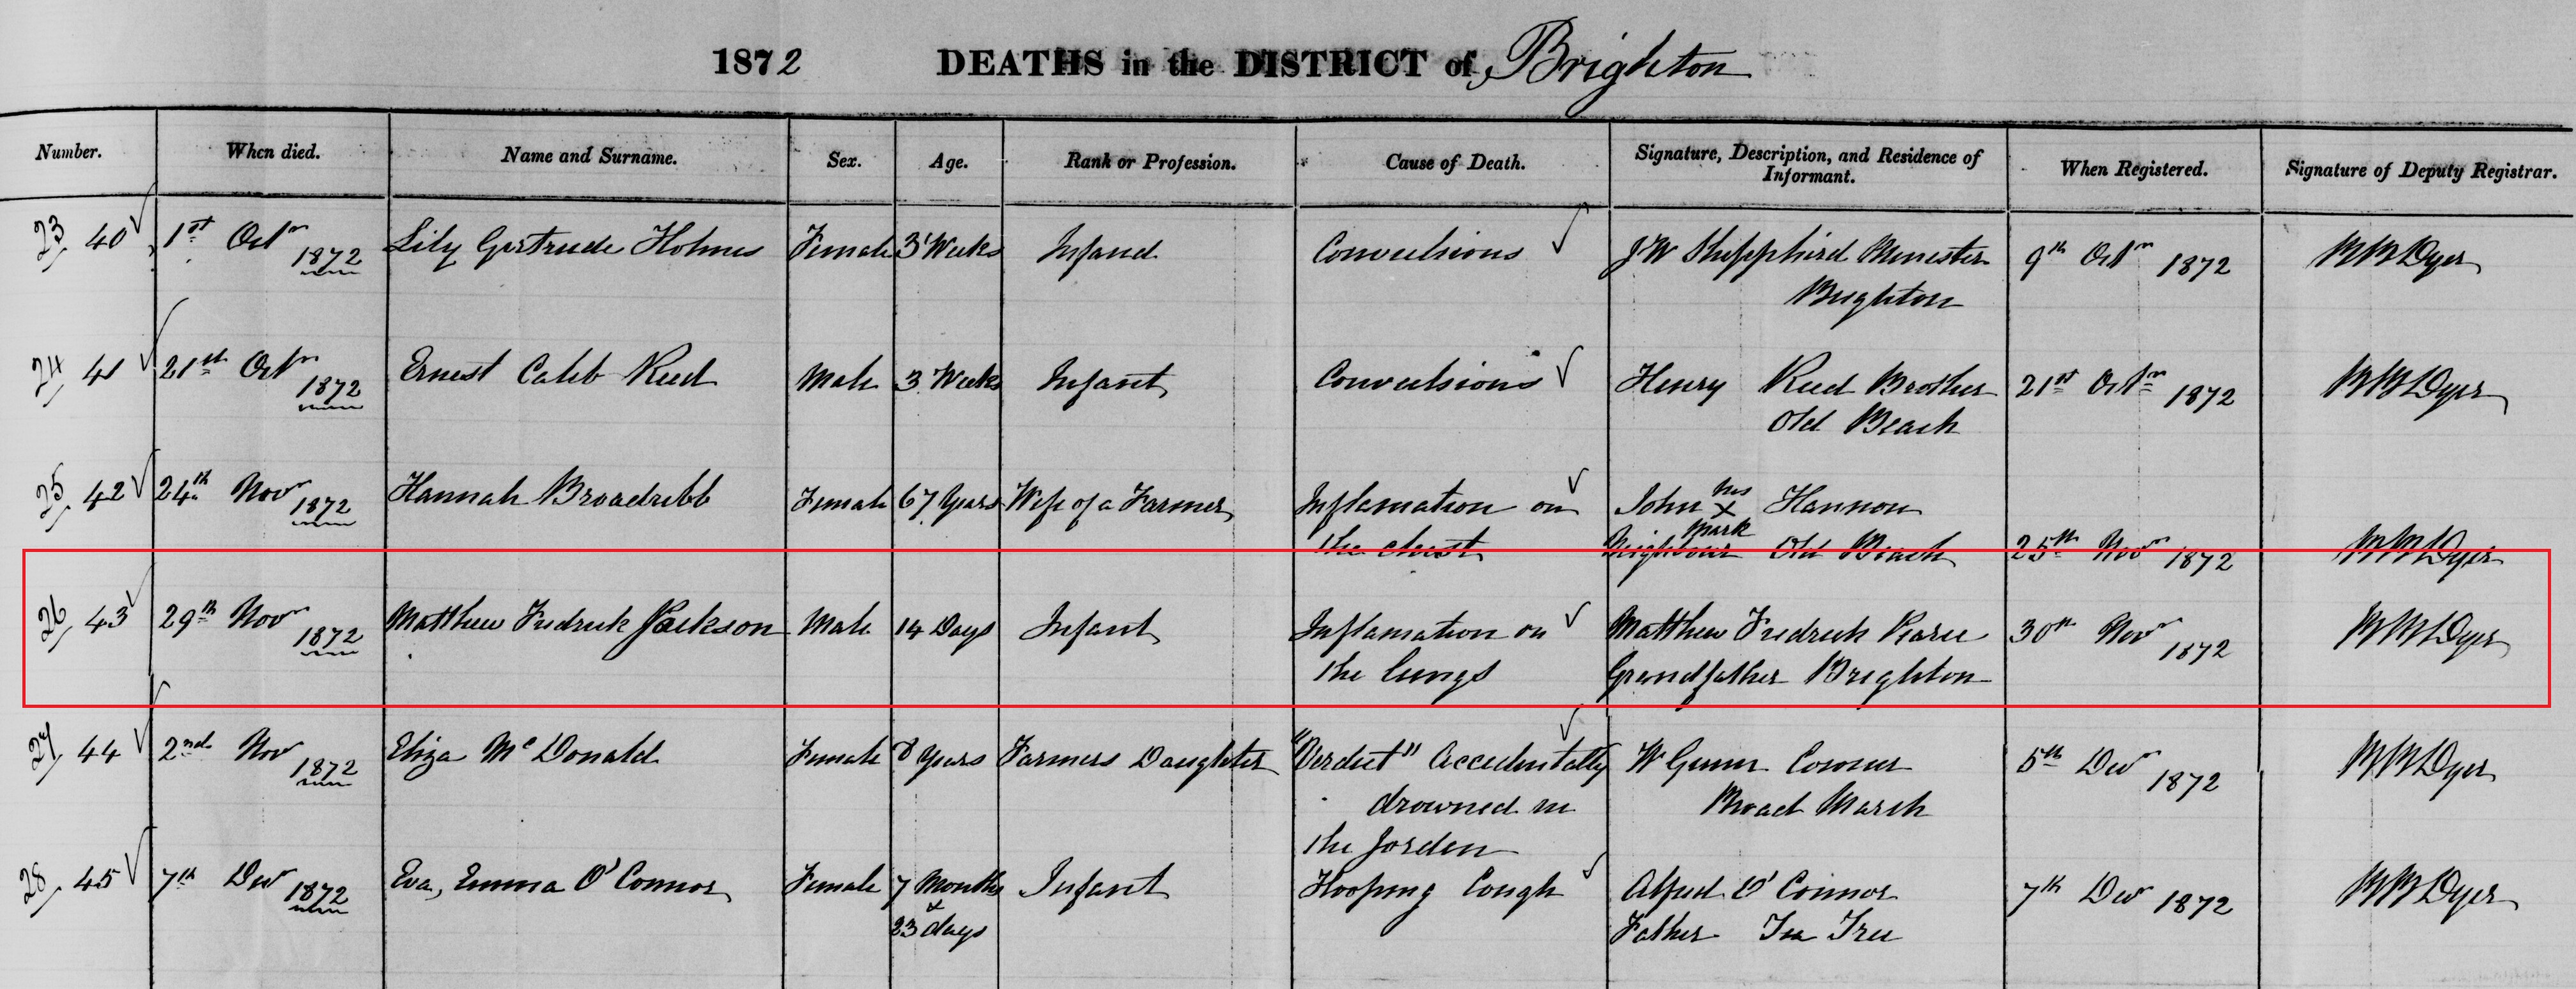 1872 DEATHS in the DISTRICT of Brighton
Number. When died. Name and Surname. Sex. Age. Rank or Profession. Cause of Death. Signature, Description, and Residence of Informant. When Registered. Signature of Deputy Registrar.
23 40 1st Octr 1872 Lily Gertrude Holmes Female 3 Weeks Infant Convulsions J W Shepphird Minester 9th Octr 1872 Dyer
Brighton
24 41 21st Octr 1872 Ernest Caleb Reed Male 3 Weeks Infant Convulsions Henry Reed Brother 21st Octr 1872 Dyer
Old Beach
25 42 24th Novr 1872 Hannah Broadribb Female 67 Years Wife of a Farmer Inflamation on John his x mark Hannon
the chest Neighbour Old Beach 25th Novr 1872 Dyer
26 43 29th Novr 1872 Matthew Fredrick Jackson Male 14 Days Infant Inflamation on Matthew Fredrick Pearce 30th Novr 1872 Dyer
the lungs Grandfather Brighton
27 44 2nd Nov 1872 Eliza McDonald Female 8 Years Farmers Daughter "Verdict" Accidentally W Gunn Coroner 5th Decr 1872 Dyer
drowned in Broad Marsh
the Jorden
28 45 7th Decr 1872 Eva, Emma O'Connor Female 7 Months Infant Hooping Cough Alfred O'Connor 7th Decr 1872 Dyer
& 23 days Father Tea Tree